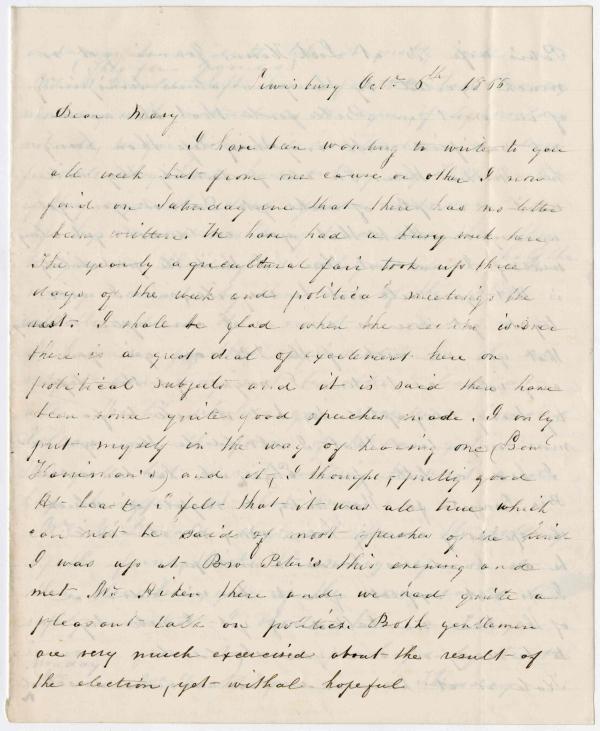 Lewisburg Octr 6th 1866
Dear Mary
I have ben wanting to write to you
all week but from one cause or other I now
find on Saturday eve that there has no letter
been written. We have had a busy week here
The yearly agricultural fair took up three
days of the week and political meetings the
rest. I shall be glad when the election is over
there is a great deal of excitement here on
political subjects and it is said there have
been some quite good speeches made. I only
put myself in the way of hearing one, Genl
and it, I thought, pretty good
At least I felt that it was all true which
can not be said of most speches of the kind
I was up at Bro Peter's this evening and
met Mr there and we had quite a
pleasant talk on politics Both gentlemen
are very much exercised about the result of
the election, yet withal hopeful